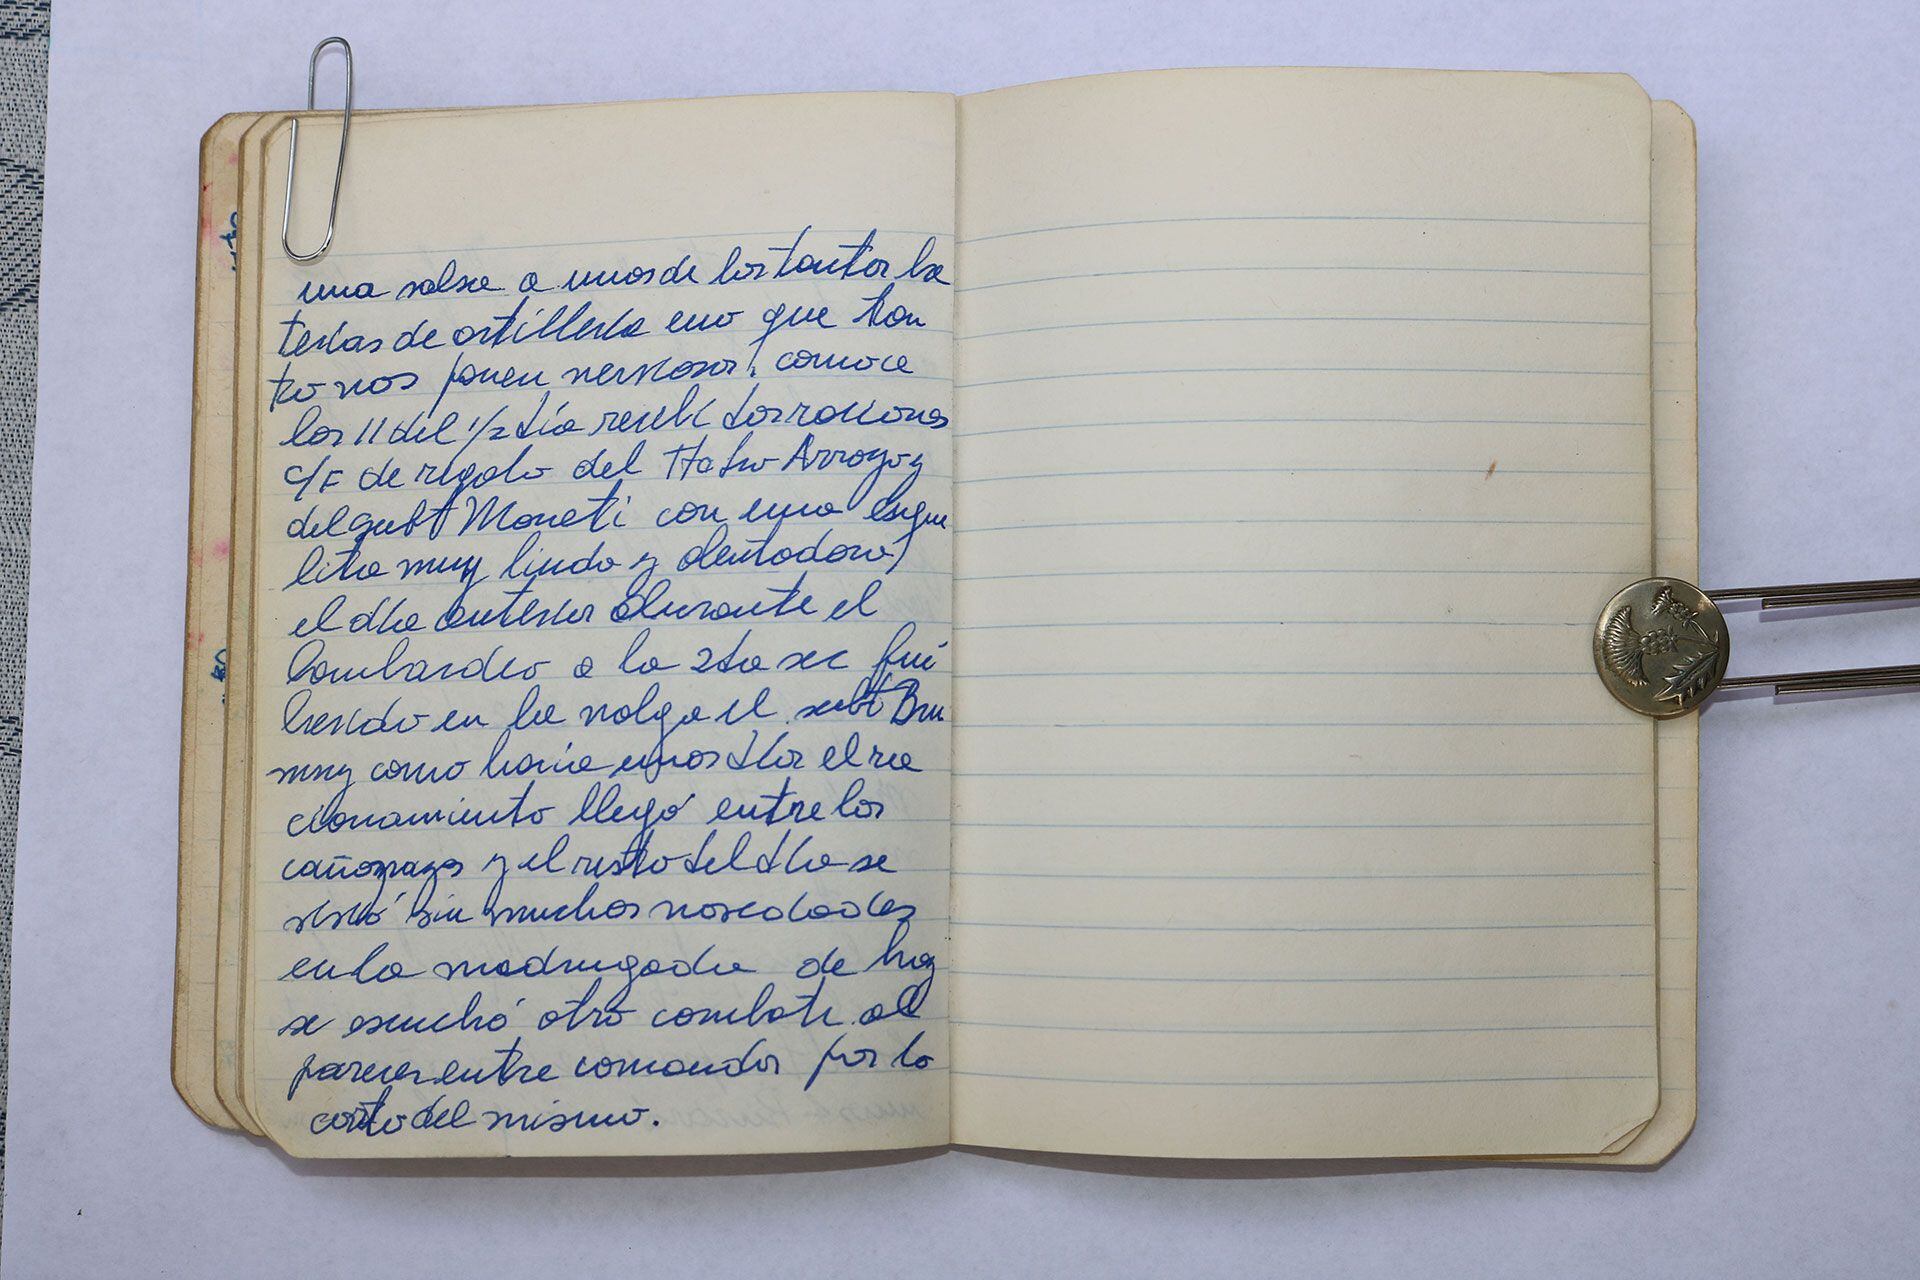 una salva a unos de los tantos ba
terias de artilleria eno que tan
to nos ponen nerviosos, como a
las 11 del 1/2 día recibi dos raciones
c/f de regalo del Tte Arroyo y
del subt Moneti con una esque
lita muy linda y alentadora,
el dia anterior durante el
bombardeo a la 2da sec fué
herido en la nalga el subt Bru
muy como hacía unos dias el ra
cionamiento llegó entre los
cañonazos y el resto del dia se
sin muchas novedades
en la madrugada de hoy
se escuchó otro combate al
parecer entre comandos por lo
corto del mismo.